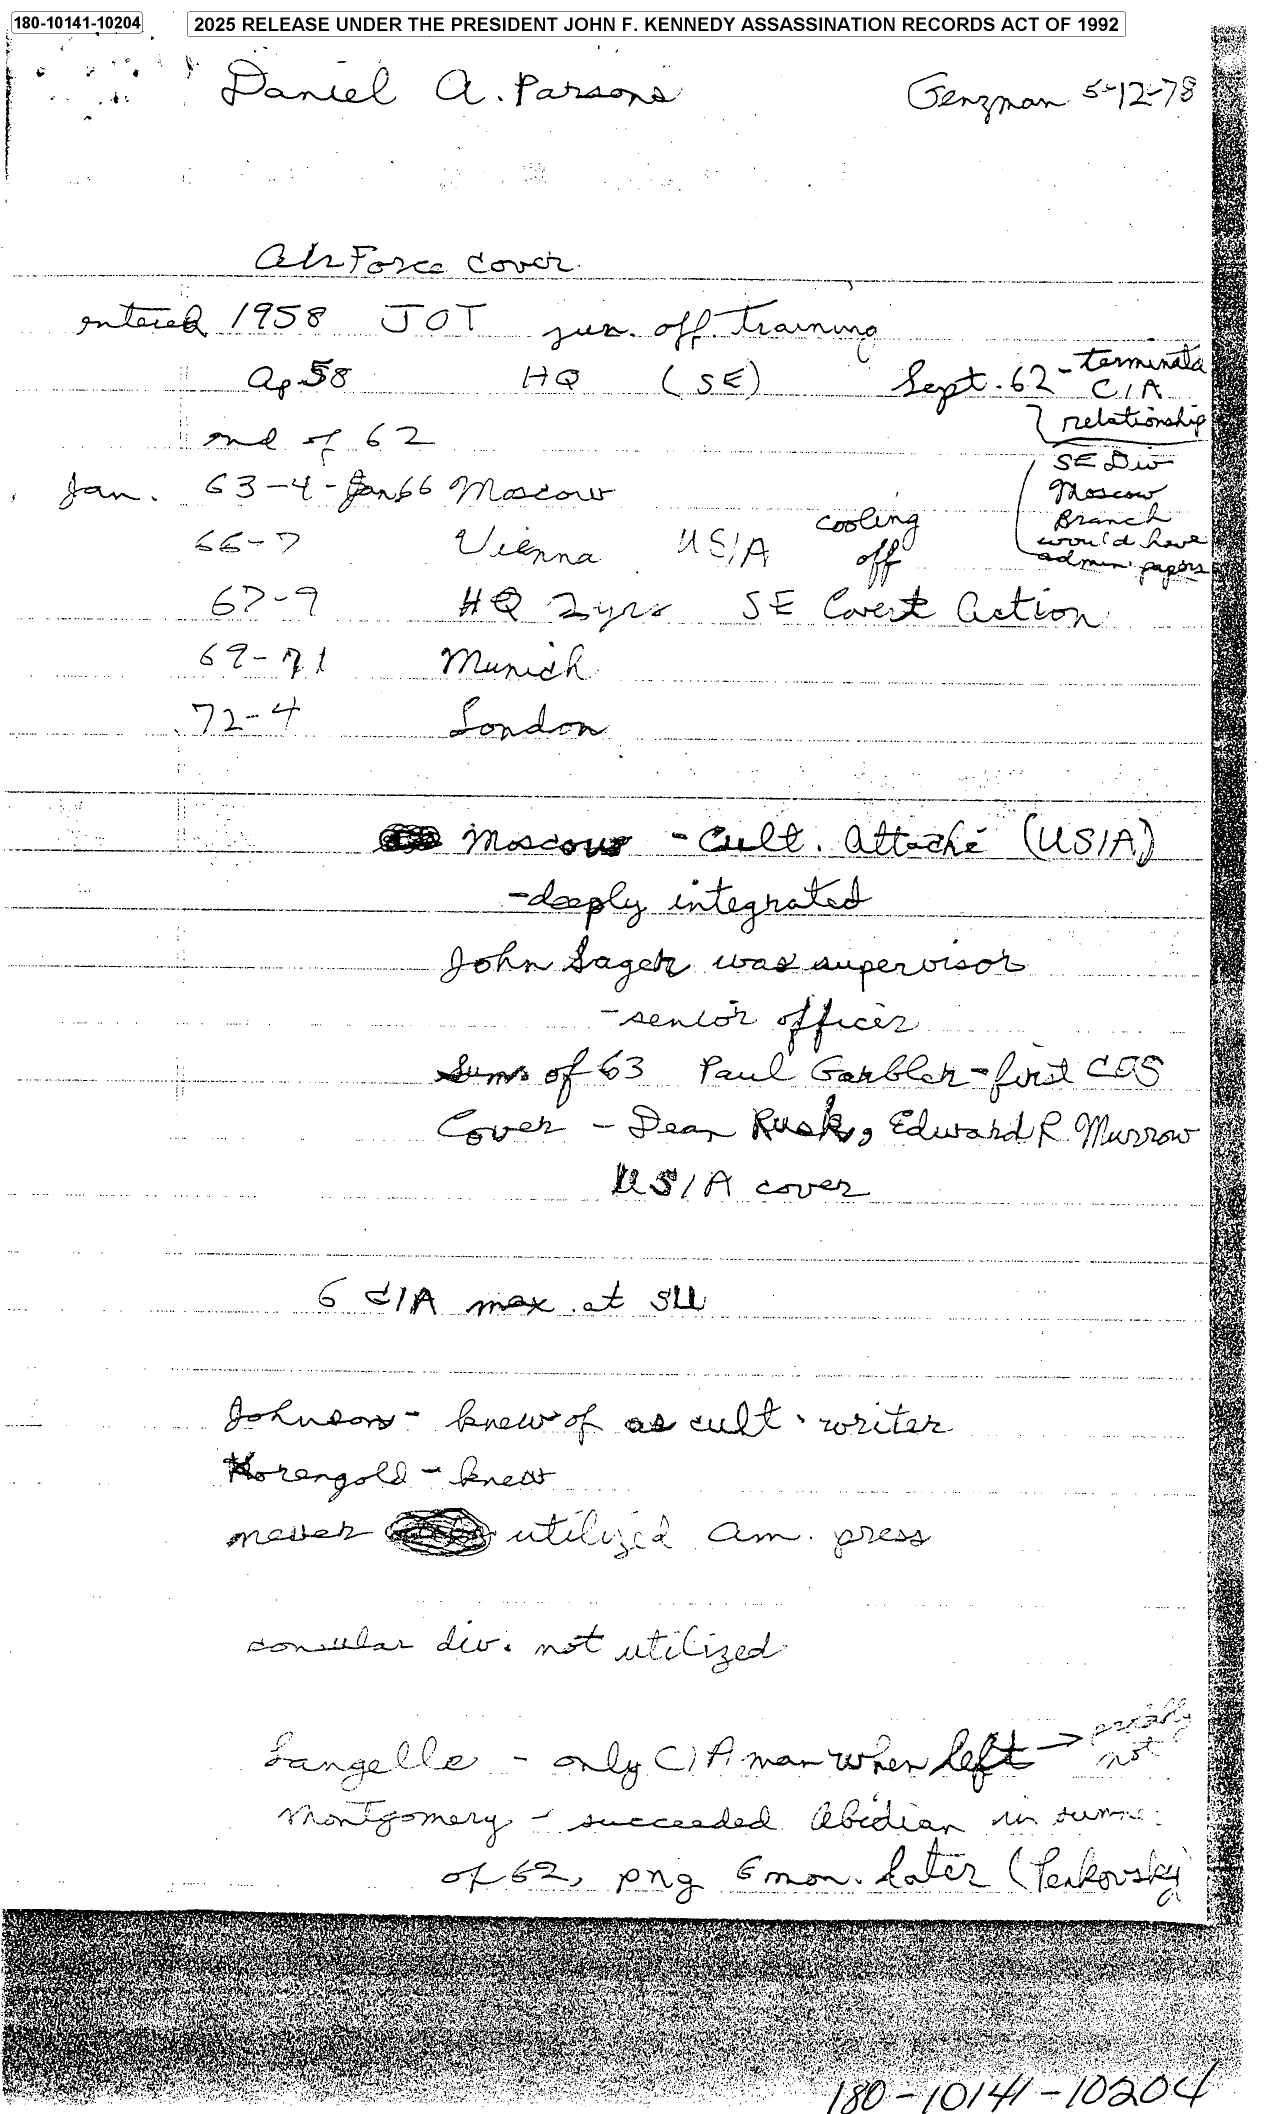 180-10141-10204
2025 RELEASE UNDER THE PRESIDENT JOHN F. KENNEDY ASSASSINATION RECORDS ACT OF 1992
Daniel A. Parsons
Genzman 5-12-78
Air Force cover
entered 1958 JOT jun. off. training
Ap 58 HQ (SE) Sept. 62 - terminate
CIA
relationship
end of 62
SE Div
Moscow
Branch
would have
admin papers
Jan. 63-4-Jan 66 Moscow
66-7 Vienna USIA cooling
off
67-9 HQ 2 yrs SE Covert Action
69-71 Munich
72-4 London
Moscow - Cult. Attaché (USIA)
-deeply integrated
John Sager was supervisor
-senior officer
Sum. of 63 Paul Garbler - first COS
Cover - Dean Rusk, Edward R. Murrow
USIA cover
6 CIA max. at SU
Johnson - knew of as cult. writer
Korengold - knew
never utilized Am. press
consular div. not utilized
Langelle - only CIA man when left → probably
not
Montgomery - succeeded Abidian in
of 62, png 6 mon. later (Penkovsky)
180-10141-10204